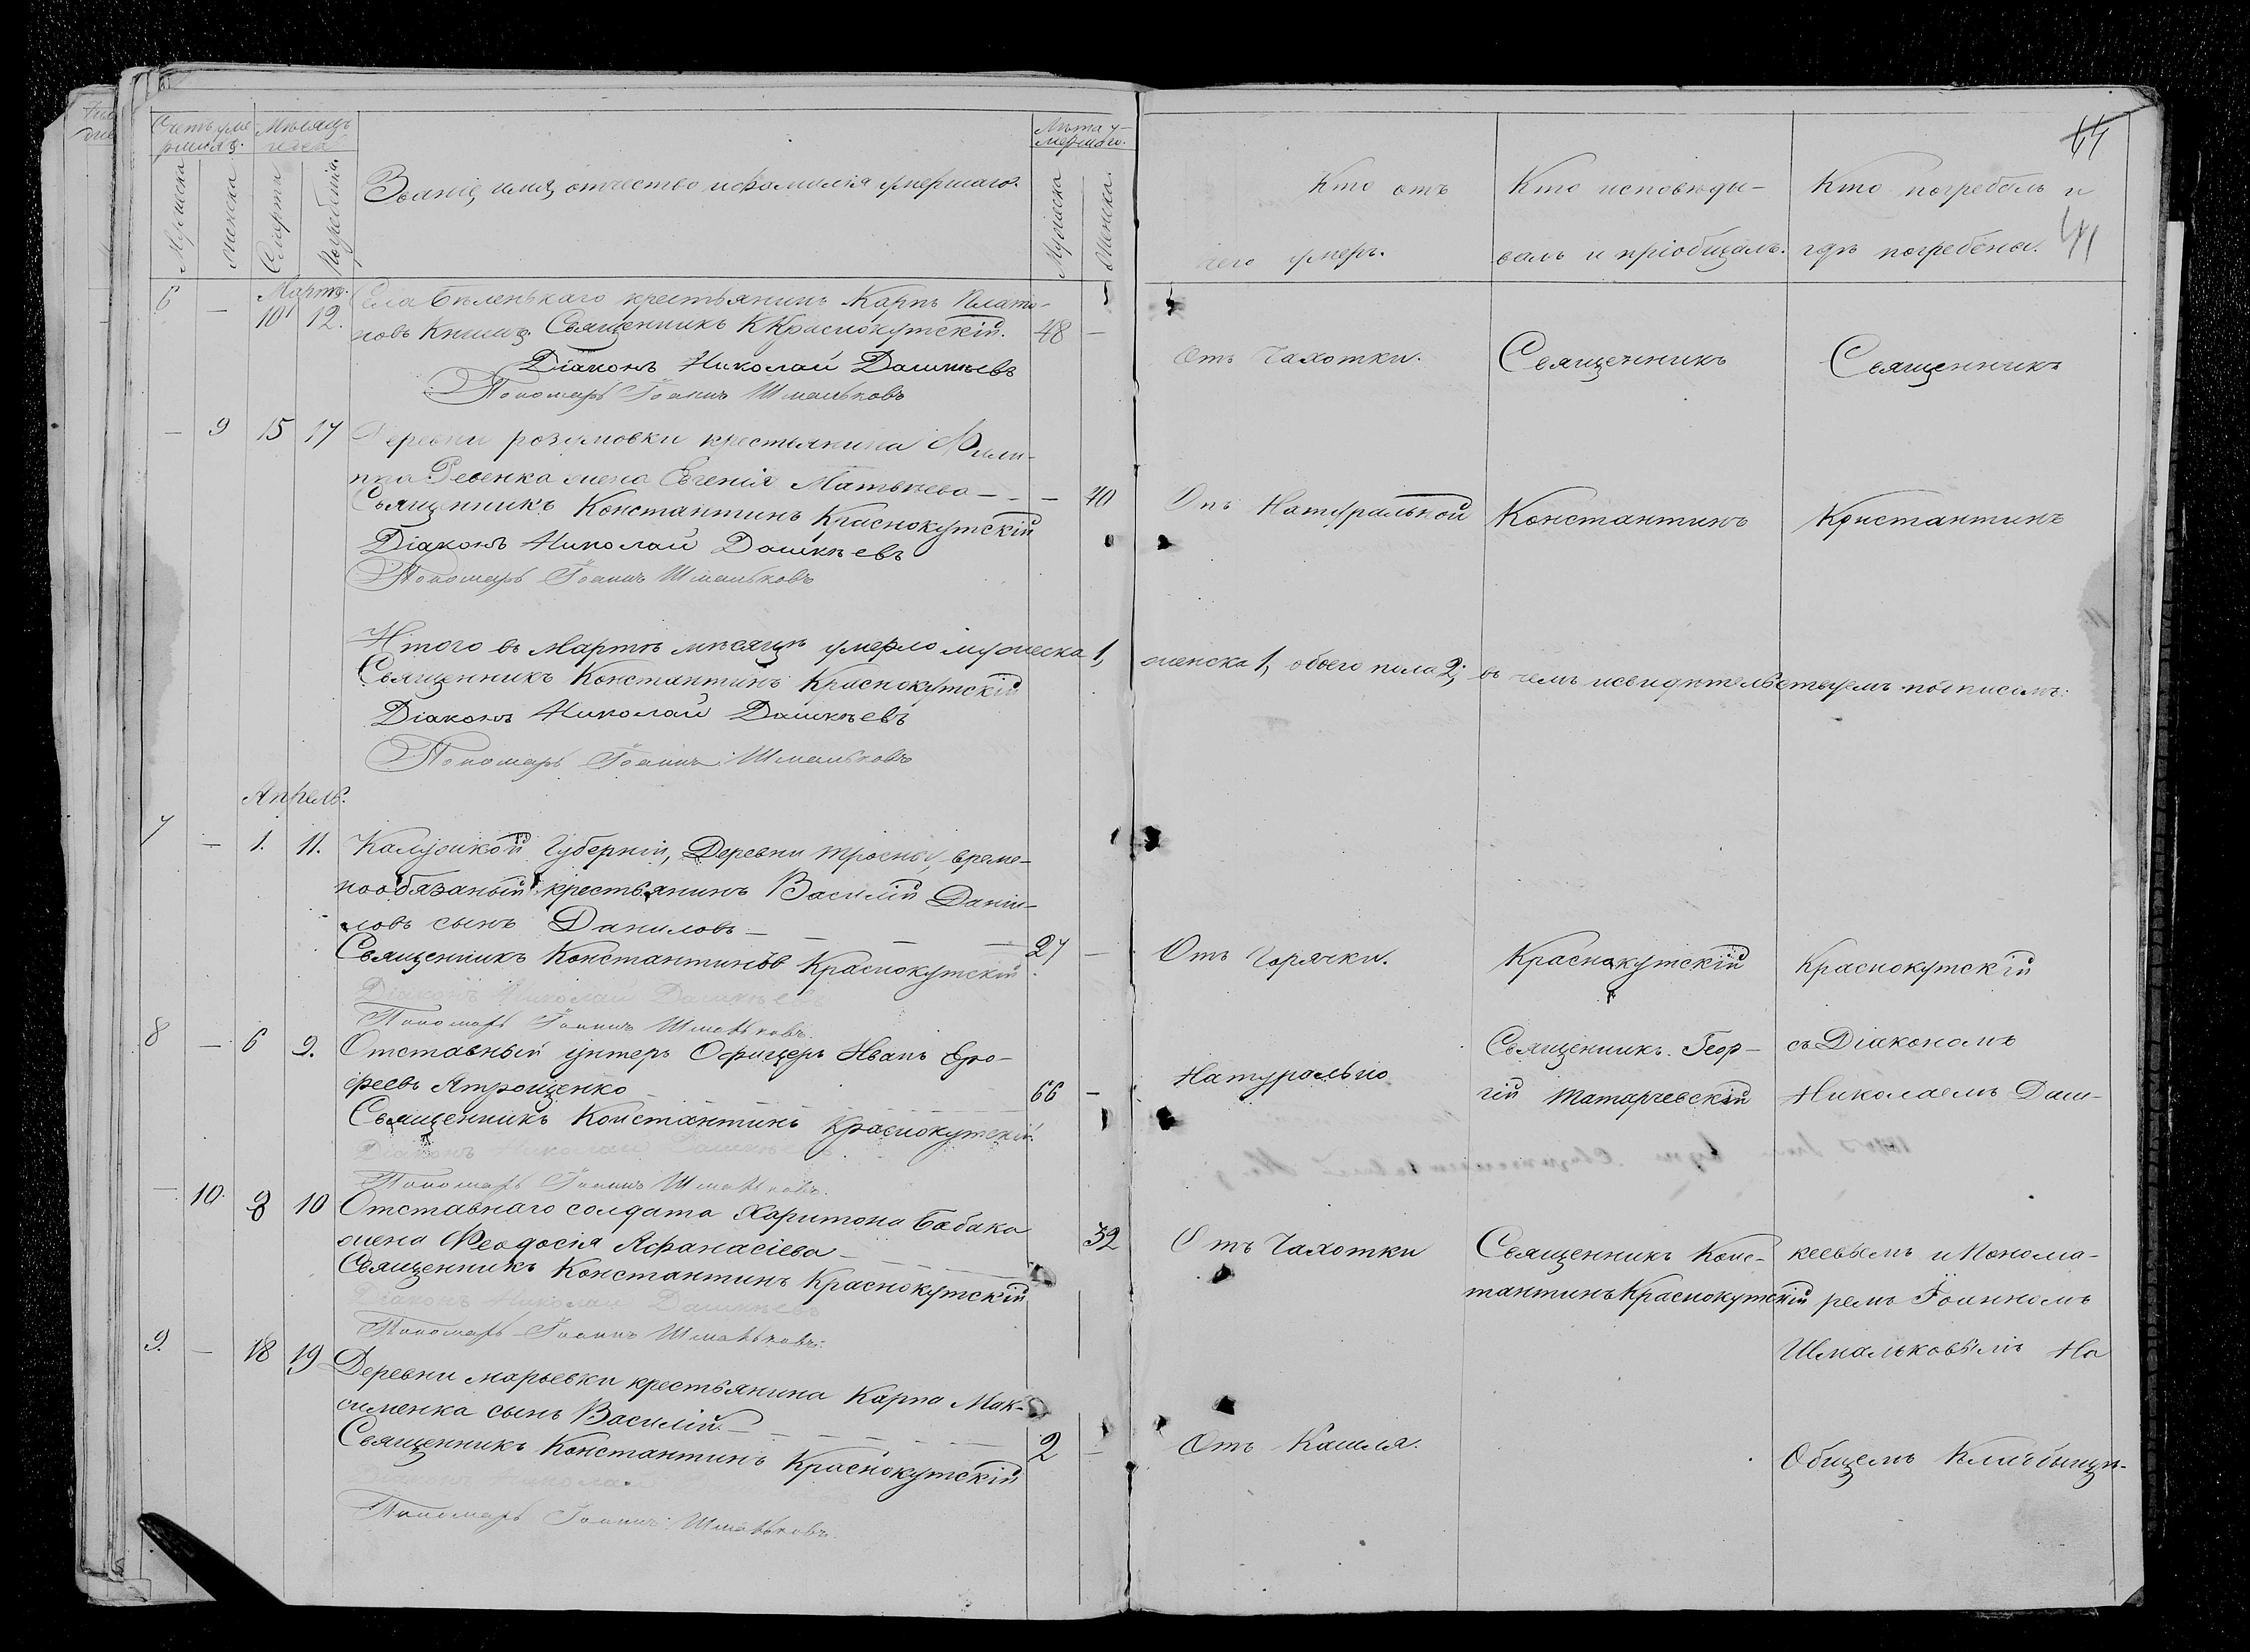 44
Счетъ уме-
ршихъ.
Мѣсяцъ
и день
Лѣта у-
мершаго.
Мужеска
Женска
Смерти
Погребенія
Званіе, имя, отчество и фамилія умершаго.
Мужеска
Женска.
Кто отъ
чего умеръ.
Кто исповѣды-
валъ и пріобщалъ.
Кто погребалъ и
гдѣ погребены.
41
Мартъ.
6 — 10 12. Села Бѣленькаго крестьянинъ Карпъ Плато-
новъ Книшъ. Священникъ К Краснокутскій. 48 —
Отъ Чахотки. Священникъ Священникъ
Діаконъ Николай Дашкѣевъ
Пономарь Іоаннъ Шмальковъ
— 9 15 17 Деревни розумовки крестьянина Фили-
ппа Ревенка жена Евгенія Матвѣева — — — 70
Отъ Натуральной Константинъ Константинъ
Священникъ Константинъ Краснокутскій
Діаконъ Николай Дашкѣевъ
Пономарь Іоаннъ Шмальковъ
Итого въ Мартѣ мѣсяцѣ умерло мужеска 1, женска 1, обоего пола 2; въ чемъ и свидѣтельствуемъ подписомъ:
Священникъ Константинъ Краснокутскій
Діаконъ Николай Дашкѣевъ
Пономарь Іоаннъ Шмальковъ
Апрель.
7 — 1. 11. Калужской Губерніи, Деревни, време-
нообязаный крестьянинъ Василій Даніи-
ловъ сынъ Даниловъ — — — — 27 —
Отъ Горячки. Краснокутскій Краснокутскій
Священникъ Константинъ Краснокутскій
Діаконъ Николай Дашкѣевъ
Пономарь Іоаннъ Шмальковъ.
8 — 6 9. Отставный унтеръ Офицеръ Иванъ Еро-
феевъ Атрощенко — 66 —
Натурально
Священникъ Геор-
гій Татарчевскій
съ Діакономъ
Николаемъ Даш-
Священникъ Константинъ Краснокутскій.
Діаконъ Николай Дашкѣевъ
Пономарь Іоаннъ Шмальковъ.
— 10. 8 10 Отставнаго солдата Харитона Бабака
жена Феодосія Афанасіева — 32
Отъ Чахотки
Священникъ Конс-
тантинъ Краснокутскій
кеевымъ и Понома-
ремъ Іоанномъ
Священникъ Константинъ Краснокутскій
Діаконъ Николай Дашкѣевъ
Пономарь Іоаннъ Шмальковъ.
Шмальковымъ На
9. — 18 19 Деревни марьевки крестьянина Карпа Мак-
сименка сынъ Василій. — 2 —
Отъ Кашля.
Общемъ Кладбищѣ.
Священникъ Константинъ Краснокутскій
Пономарь Іоаннъ Шмальковъ.